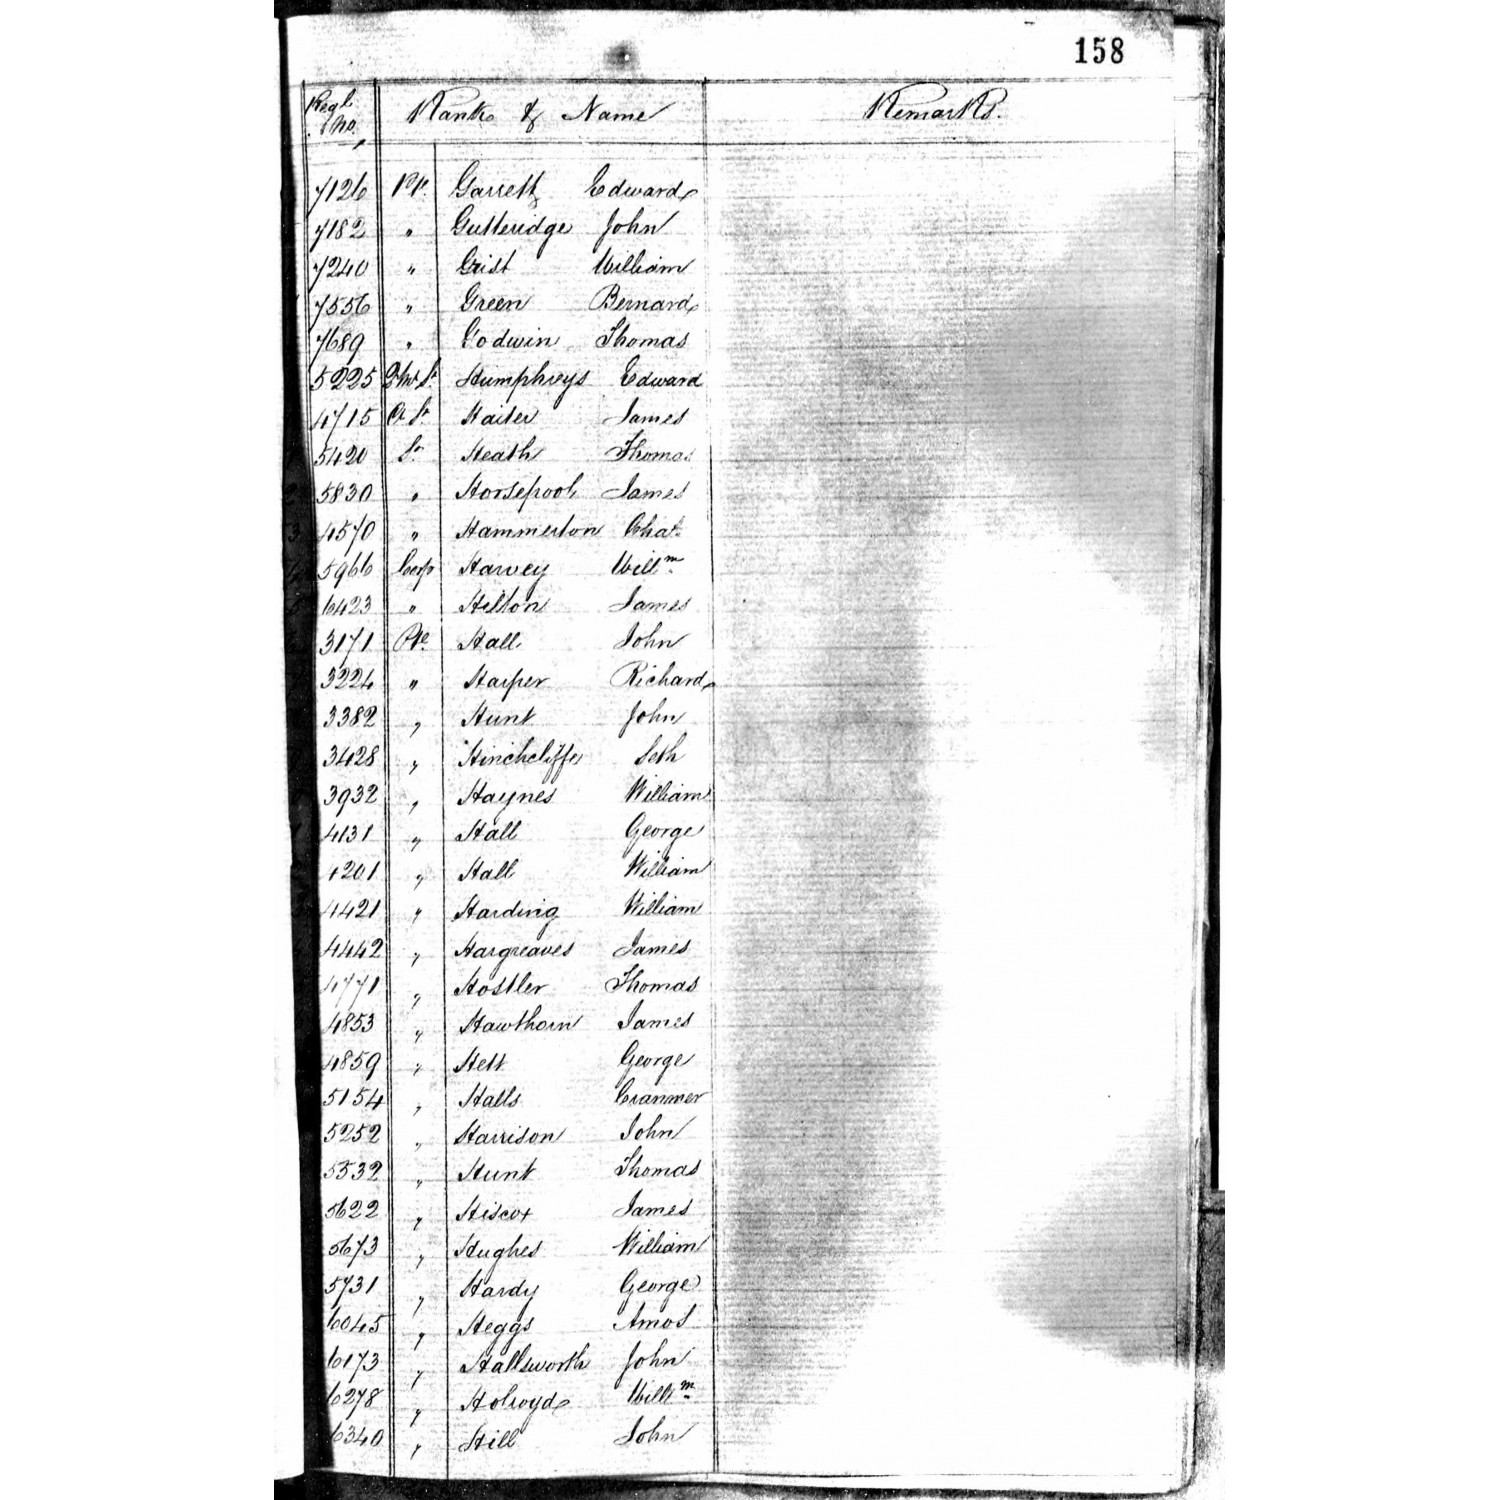 158
Regl No. Rank & Name Remarks.
7126 Pt. Garrett Edward
7182 " Gutteridge John
7240 " Grist William
7556 " Green Bernard
7689 " Godwin Thomas
5225 Humphreys Edward
4715 Haiter James
5420 Sr. Heath Thomas
5830 " Horsepool James
4570 " Hammerton Chas
5966 Corp Harvey Willm
6423 " Hilton James
3171 Pte Hall John
3224 " Harper Richard
3382 " Hunt John
3428 " Hinchcliffe Seth
3932 " Haynes William
4131 " Hall George
4201 " Hall William
4421 " Harding William
4442 " Hargreaves James
4771 " Hostler Thomas
4853 " Hawthorn James
4859 " Hett George
5154 " Halls Cranmer
5252 " Harrison John
5532 " Hunt Thomas
5622 " Hiscox James
5673 " Hughes William
5731 " Hardy George
6045 " Heggs Amos
6173 " Hallsworth John
6278 " Holroyd Willm
6340 " Hill John